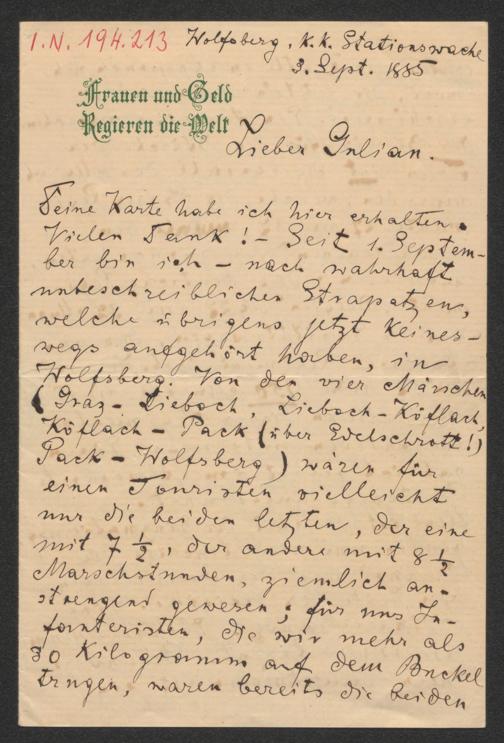 I.N. 194.213
Wolfsberg, K. K. Stationswache
3. Sept. 1885
Frauen und Geld
Regieren die Welt
Lieber Julian.
Deine Karte habe ich hier erhalten.
Vielen Dank! – Seit 1. Septem-
ber bin ich – nach wahrhaft
unbeschreiblichen Strapatzen,
welche übrigens jetzt keines-
wegs aufgehört haben, in
Wolfsberg. Von den vier Märschen
(Graz – Lieboch, Lieboch – Köflach,
Köflach – Pack (über Edelschrott!)
Pack – Wolfsberg) wären für
einen Touristen vielleicht
nur die beiden letzten, der eine
mit 7 1/2, der andere mit 8 1/2
Marschstunden, ziemlich an-
strengend gewesen; für uns In-
fanteristen, die wir mehr als
30 Kilogramm auf dem Buckel
trugen, waren bereits die beiden